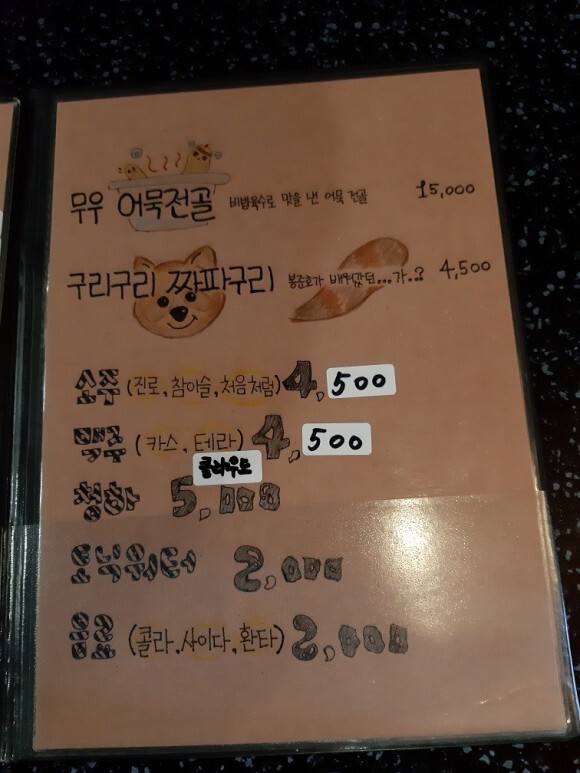 무우 어묵전골 비밀육수로 맛을 낸 어묵 전골 15,000
구리구리 짜파구리 봉준호가 배워갔던...가..? 4,500
소주 (진로, 참이슬, 처음처럼) 4,500
맥주 (카스, 테라) 4,500
클라우드
청하 5,000
토닉워터 2,000
음료 (콜라, 사이다, 환타) 2,000